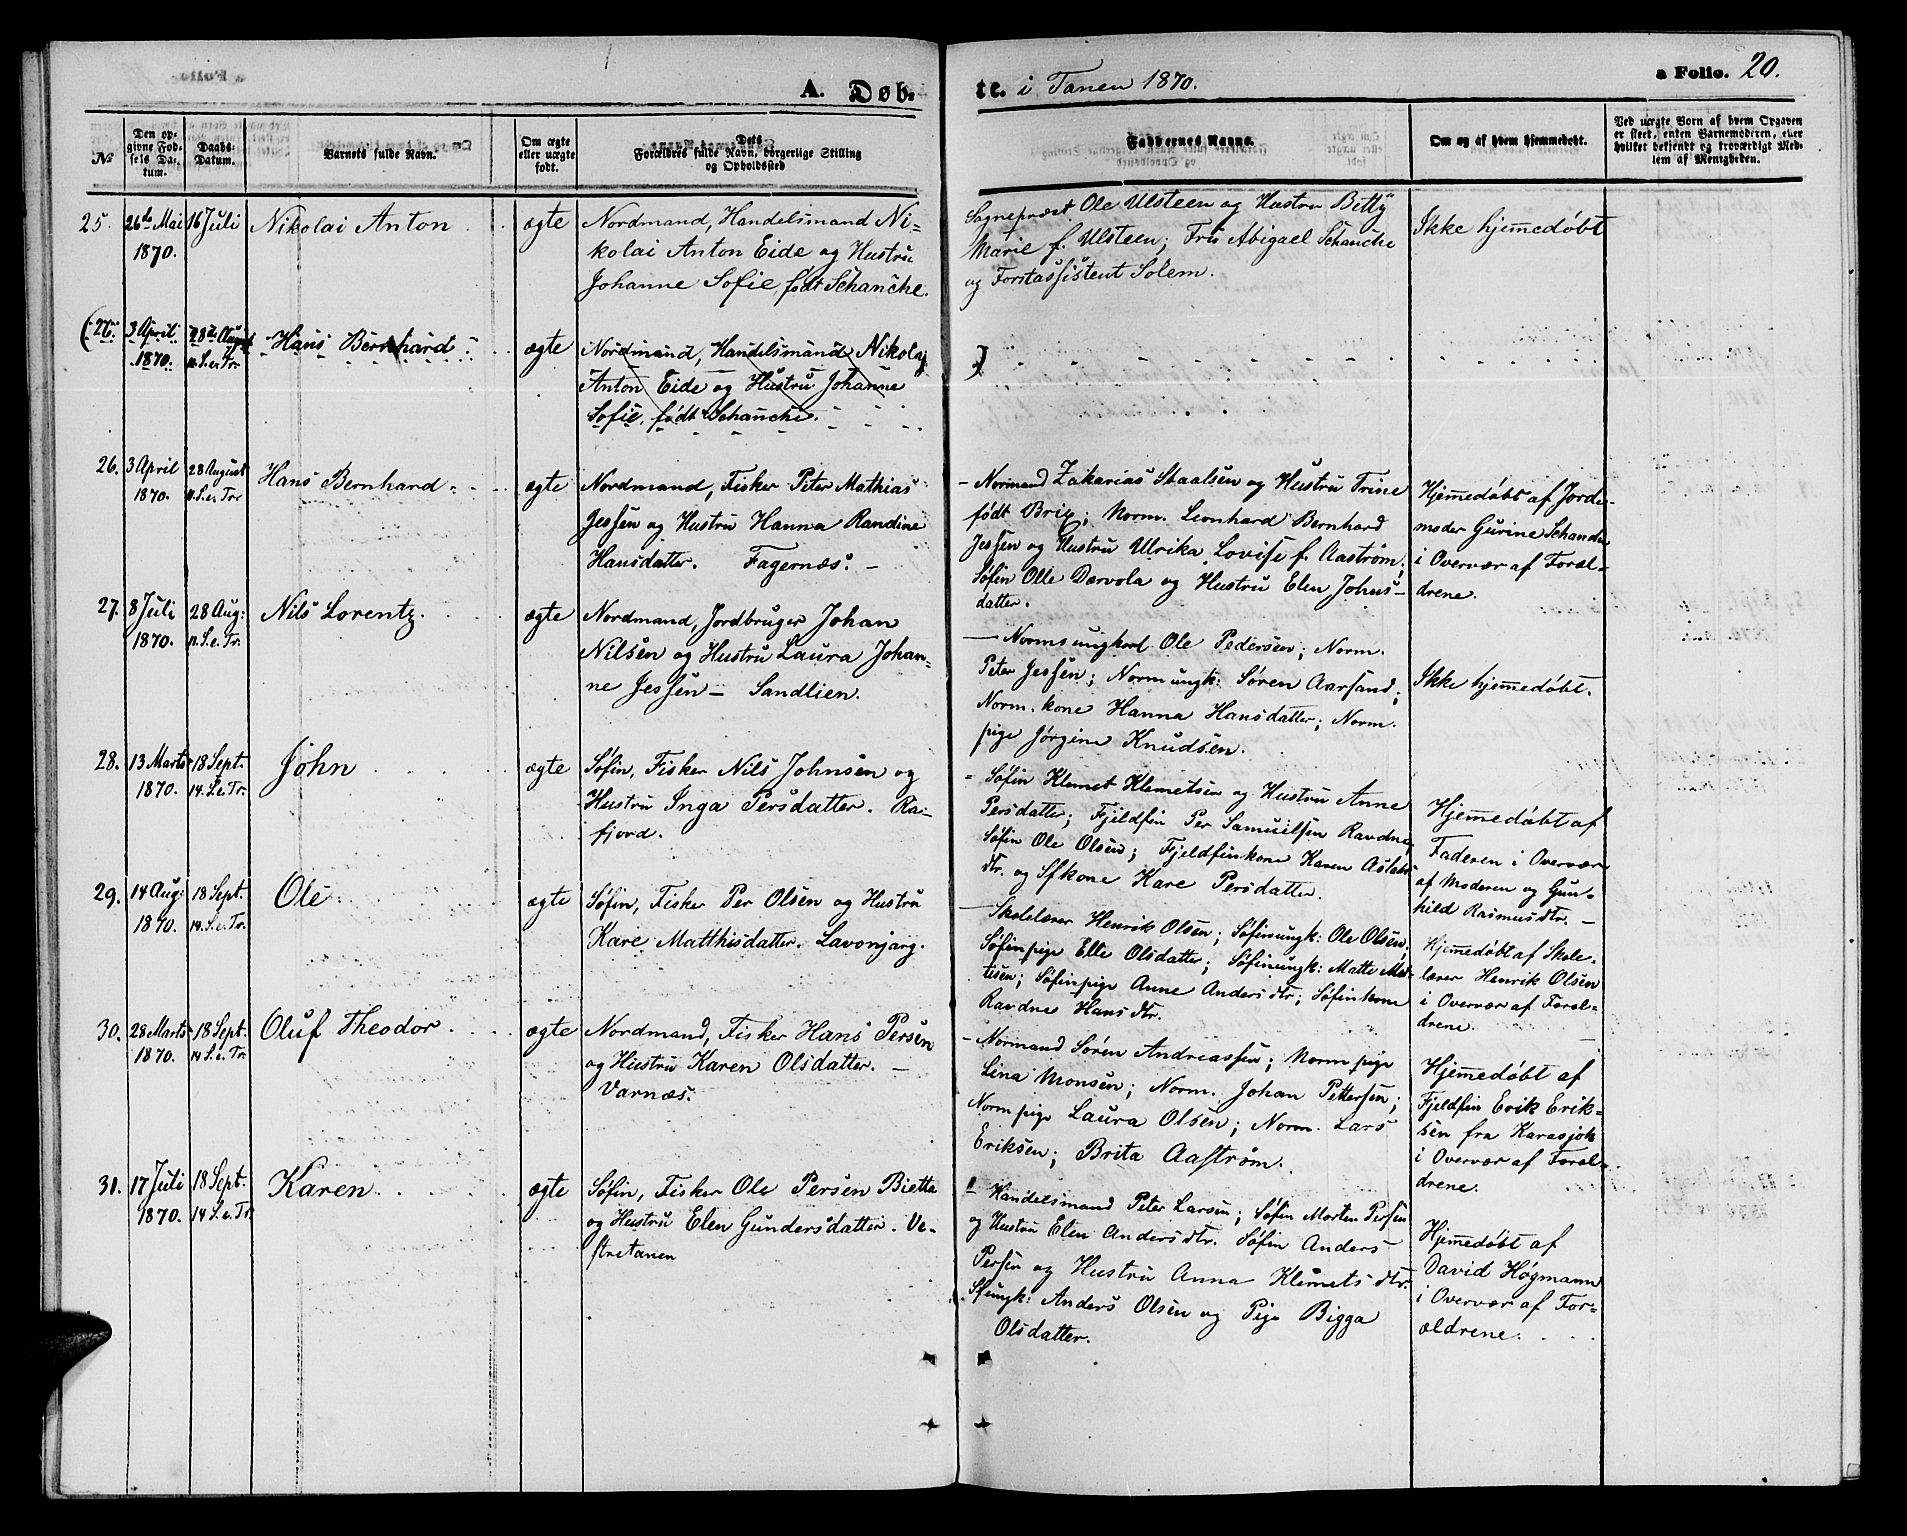 a Folio. 20.
A. Døb-
te. i Tanen 1870.
No
Den op-
givne Fød-
sels Da-
tum.
Daabs-
Datum.
Barnets fulde Navn.
Om ægte
eller uægte
født.
Dets
Forældres fulde Navn, borgerlige Stilling
og Opholdssted
Faddernes Navne.
Om og af hvem hjemmedøbt.
Ved uægte Børn af hvem Opgaven
er skeet, enten Barnemoderen, eller
hvilket bekjendt og troværdigt Med-
lem af Menigheden.
25.
26de Mai
1870.
16 Juli
Nikolai Anton
ægte
Nordmand, Handelsmand Ni=
kolai Anton Eide og Hustru
Johanne Sofie, født Schanche.
Sognepræst Ole Ulsteen og Hustru Betty
Marie f. Ulsteen; Frk Abigael Schanche
og Forstassistent Solem.
Ikke hjemmedøbt
(26.
3 April
1870.
28de August
11. S. e. Tr.
Hans Bernhard
ægte
Nordmand, Handelsmand Nikolaj
Anton Eide og Hustru Johanne
Sofie, født Schanche.
)
26.
3 April
1870.
28 August
11. S. e. Tr
Hans Bernhard
ægte
Nordmand, Fisker Peter Mathias
Jessen og Hustru Hanna Randine
Hansdatter. Fagernæs. –
– Normand Zakarias Staalsen og Hustru Trine
født Brix; Norm. Leonhard Bernhard
Jessen og Hustru Ulrika Lovise f. Aaström;
Søfin Olle Dærvola og Hustru Elen Johns-
datter.
Hjemmedøbt af Jorde-
moder Gurine Schanche
i Overvær af Foræl-
drene.
27.
8 Juli
1870.
28 Aug:
11. S. e. Tr.
Nils Lorentz
ægte
Nordmand, Jordbruger Johan
Nilsen og Hustru Laura Johan=
ne Jessen – Sandlien.
– Normsungkarl Ole Pedersen; Norm.
Peter Jessen; Normungk: Søren Aarsand;
Norm. kone Hanna Hansdatter; Norm.
pige Jørgine Knudsen.
Ikke hjemmedøbt.
28.
13 Marts
1870.
18 Sept.
14. S. e. Tr.
John
ægte
Søfin, Fisker Nils Johnsen og
Hustru Inga Persdatter. Ra-
fjord.
= Søfin Klemet Klemetsen og Hustru Anne
Persdatter; Fjeldfin Per Samuilsen Ravdna;
Søfin Ole Olsen; Fjeldfinkone Karen Aslaks
dtr. og Sfkone Kare Persdatter.
Hjemmedøbt af
Faderen i Overvær
af Moderen og Gun-
hild Rasmusdtr. –
29.
14 Aug:
1870.
18 Sept.
14. S. e. Tr.
Ole
ægte
Søfin, Fisker Per Olsen og Hustru
Kare Matthisdatter. Lavonjarg.
– Skolelærer Henrik Olsen; Søfinungk: Ole Olsen;
Søfinpige Elle Olsdatter; Søfinungk: Matte Mat-
tisen; Søfinpige Anne Andersdtr; Søfinkone
Ravdne Hansdtr.
Hjemmedøbt af Skole-
lærer Henrik Olsen
i Overvær af Foræl-
drene.
30.
28 Marts
1870.
18 Sept.
14 S. e. Tr.
Oluf Theodor
ægte
Nordmand, Fisker Hans Persen
og Hustru Karen Olsdatter. –
Varnæs.
– Normand Søren Andreassen; Norm pige
Lina Monsen; Norm. Johan Pettersen;
Norm pige Laura Olsen; Norm. Lars
Eriksen; Brita Aaström.
Hjemmedøbt af
Fjeldfin Erik Erik=
sen fra Karasjok
i Overvær af Foræl-
drene.
31.
17 Juli
1870.
18 Sept.
14 S. e. Tr.
Karen
ægte
Søfin, Fisker Ole Persen Bietta
og Hustru Elen Gundersdatter. Ve-
stretanen
= Handelsmand Peter Larsen; Søfin Morten Persen
og Hustru Elen Andersdtr. Søfin Anders
Persen og Hustru Anna Klemetsdtr.
Sfungk: Anders Olsen og Pige Bigga
Olsdatter.
Hjemmedøbt af
David Høgmann
i Overvær af For-
ældrene.